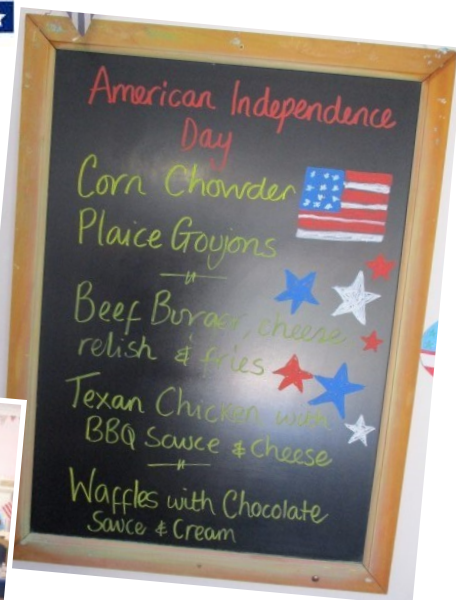 American Independence
Day
Corn Chowder
Plaice Goujons
Beef Burger, cheese
relish & fries
Texan Chicken with
BBQ Sauce & Cheese
Waffles with Chocolate
Sauce & Cream